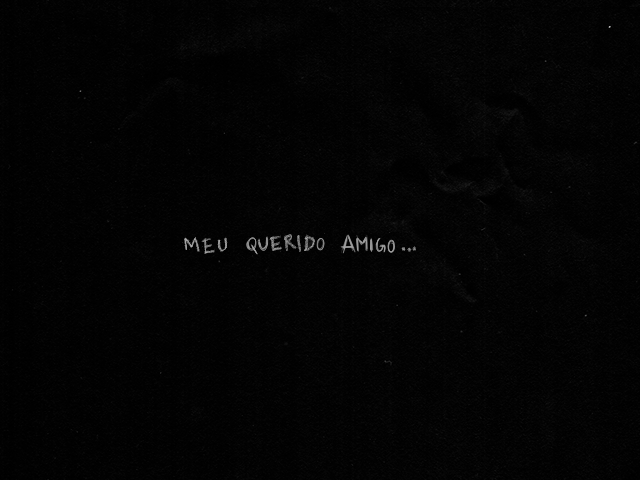 MEU QUERIDO AMIGO...